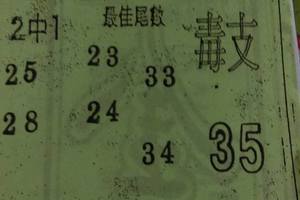 2中1
最佳尾數
毒支
25
23
33
28
24
34
35